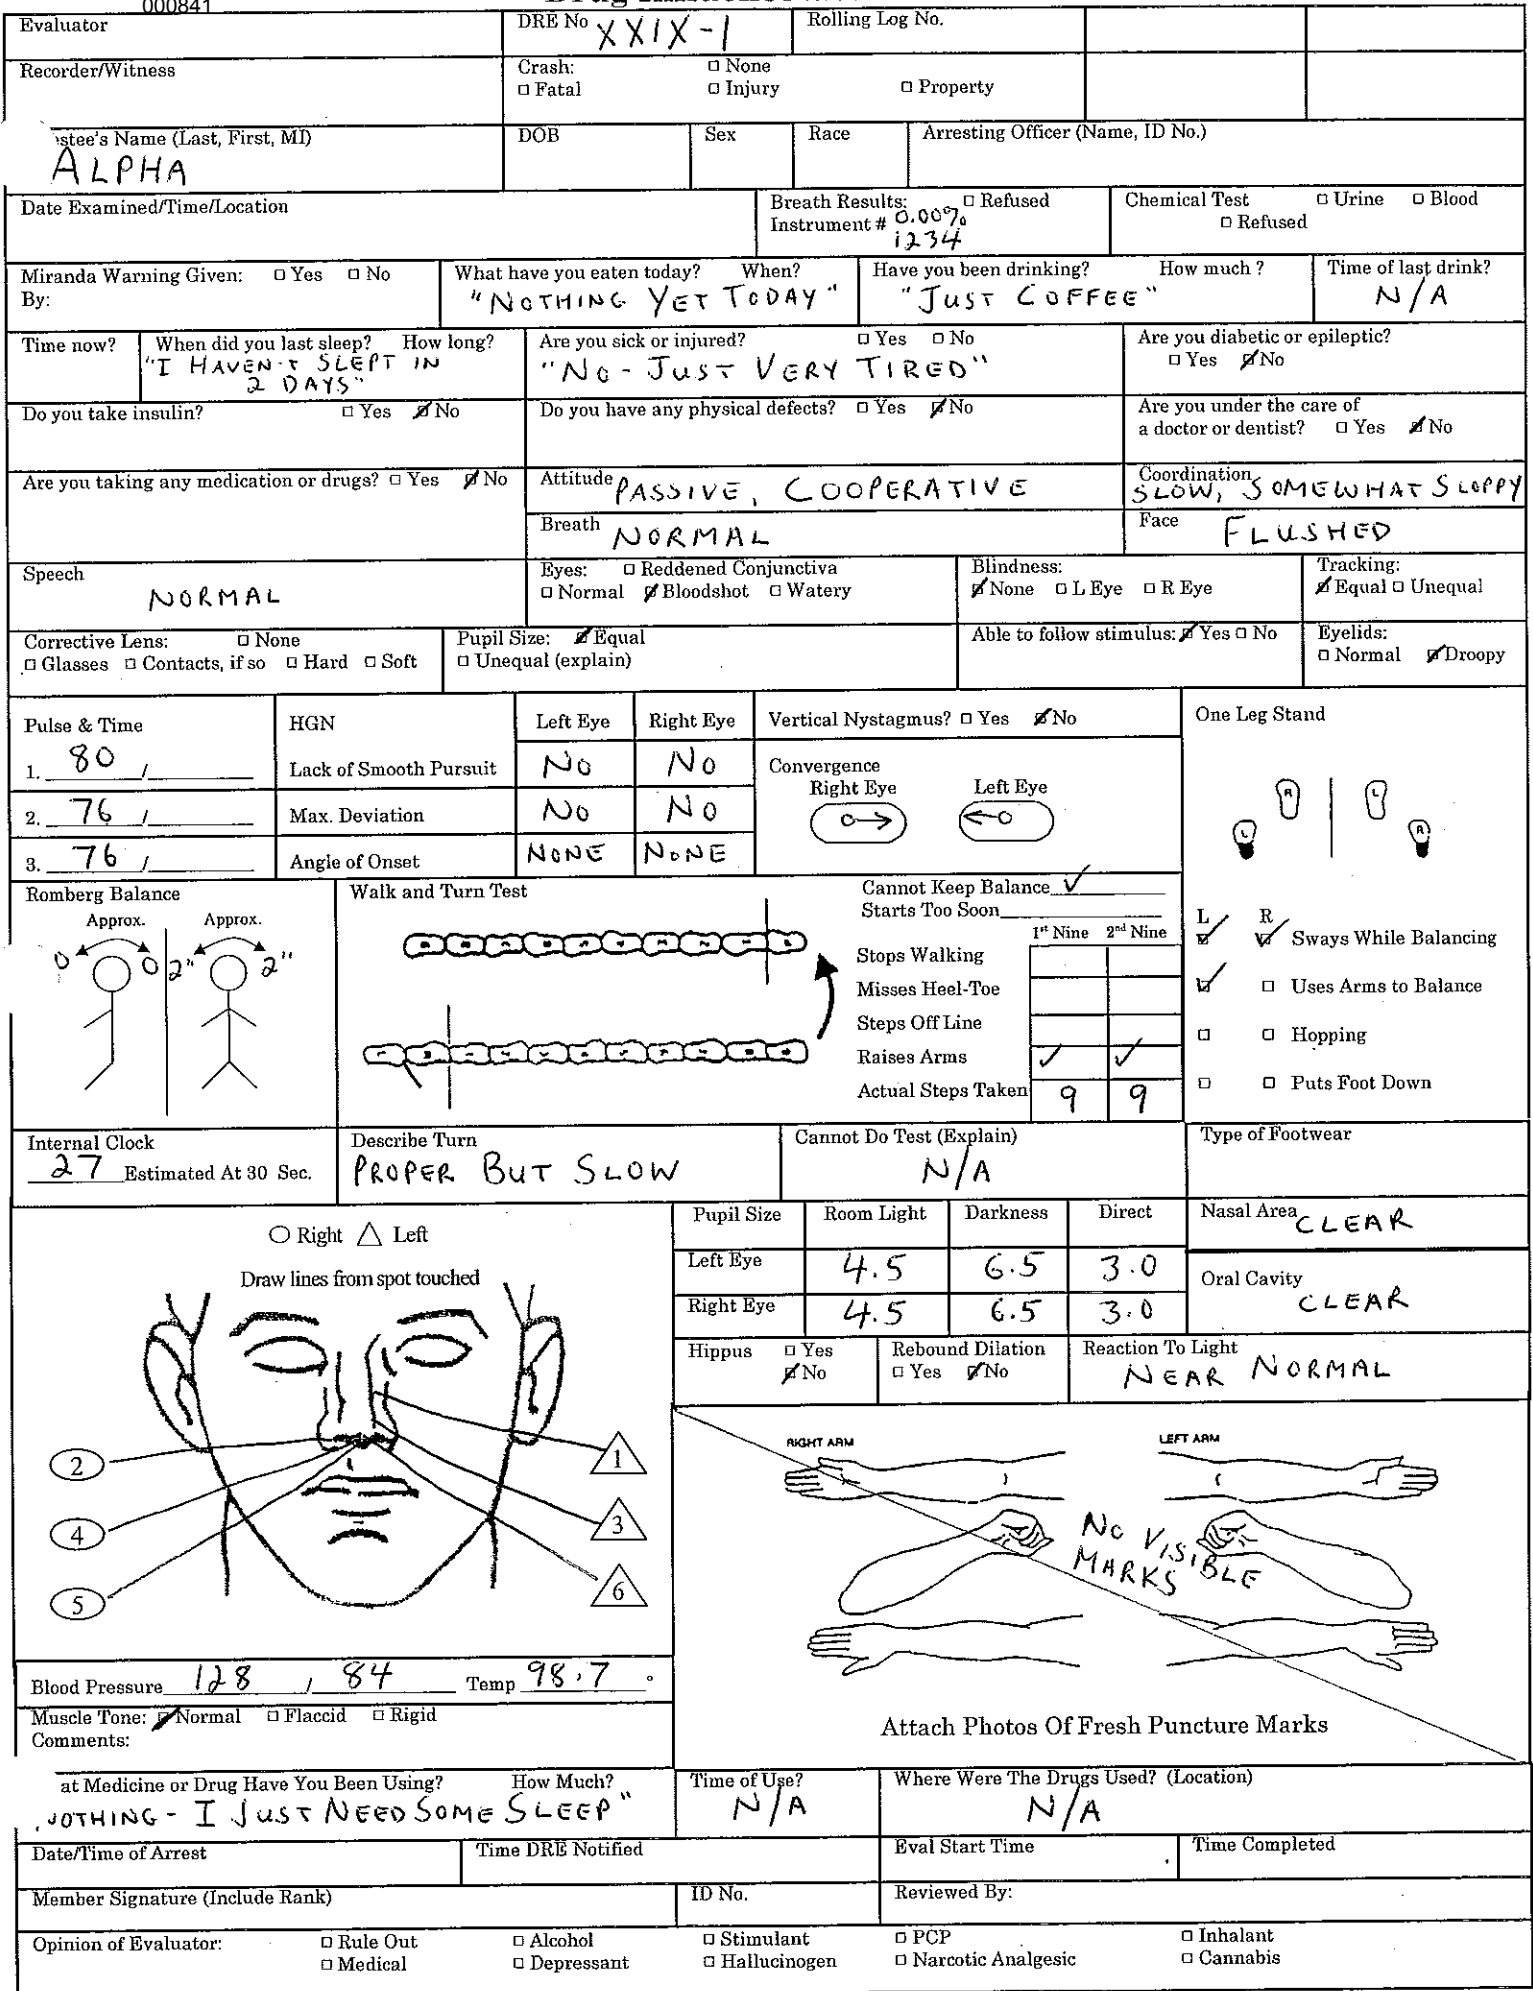 000841
Evaluator
DRE No XXIX-1
Rolling Log No.
Recorder/Witness
Crash: □ None
□ Fatal □ Injury □ Property
stee's Name (Last, First, MI)
ALPHA
DOB
Sex
Race
Arresting Officer (Name, ID No.)
Date Examined/Time/Location
Breath Results: □ Refused
Instrument # 0.00%
1234
Chemical Test □ Urine □ Blood
□ Refused
Miranda Warning Given: □ Yes □ No
By:
What have you eaten today? When?
"NOTHING YET TODAY"
Have you been drinking? How much ?
"JUST COFFEE"
Time of last drink?
N/A
Time now?
When did you last sleep? How long?
"I HAVEN'T SLEPT IN
2 DAYS"
Are you sick or injured? □ Yes □ No
"NO - JUST VERY TIRED"
Are you diabetic or epileptic?
□ Yes ☑ No
Do you take insulin? □ Yes ☑ No
Do you have any physical defects? □ Yes ☑ No
Are you under the care of
a doctor or dentist? □ Yes ☑ No
Are you taking any medication or drugs? □ Yes ☑ No
Attitude PASSIVE, COOPERATIVE
Coordination
SLOW, SOMEWHAT SLOPPY
Breath NORMAL
Face FLUSHED
Speech
NORMAL
Eyes: □ Reddened Conjunctiva
□ Normal ☑ Bloodshot □ Watery
Blindness:
☑ None □ L Eye □ R Eye
Tracking:
☑ Equal □ Unequal
Corrective Lens: □ None
□ Glasses □ Contacts, if so □ Hard □ Soft
Pupil Size: ☑ Equal
□ Unequal (explain)
Able to follow stimulus: ☑ Yes □ No
Eyelids:
□ Normal ☑ Droopy
Pulse & Time
1. 80 /
2. 76 /
3. 76 /
HGN Left Eye Right Eye
Lack of Smooth Pursuit NO NO
Max. Deviation NO NO
Angle of Onset NONE NONE
Vertical Nystagmus? □ Yes ☑ No
Convergence
Right Eye Left Eye
One Leg Stand
R L
L R
Romberg Balance
Approx. Approx.
0 0 2" 2"
Walk and Turn Test
Cannot Keep Balance ✓
Starts Too Soon
1st Nine 2nd Nine
Stops Walking
Misses Heel-Toe
Steps Off Line
Raises Arms ✓ ✓
Actual Steps Taken 9 9
L R
☑ ☑ Sways While Balancing
☑ □ Uses Arms to Balance
□ □ Hopping
□ □ Puts Foot Down
Internal Clock
27 Estimated At 30 Sec.
Describe Turn
PROPER BUT SLOW
Cannot Do Test (Explain)
N/A
Type of Footwear
○ Right △ Left
Draw lines from spot touched
2 1
4 3
5 6
Pupil Size Room Light Darkness Direct
Left Eye 4.5 6.5 3.0
Right Eye 4.5 6.5 3.0
Nasal Area CLEAR
Oral Cavity
CLEAR
Hippus □ Yes
☑ No
Rebound Dilation
□ Yes ☑ No
Reaction To Light
NEAR NORMAL
RIGHT ARM LEFT ARM
NO VISIBLE
MARKS
Attach Photos Of Fresh Puncture Marks
Blood Pressure 128 / 84 Temp 98.7 °
Muscle Tone: ☑ Normal □ Flaccid □ Rigid
Comments:
at Medicine or Drug Have You Been Using? How Much?
NOTHING - I JUST NEED SOME SLEEP"
Time of Use?
N/A
Where Were The Drugs Used? (Location)
N/A
Date/Time of Arrest
Time DRE Notified
Eval Start Time
Time Completed
Member Signature (Include Rank)
ID No.
Reviewed By:
Opinion of Evaluator: □ Rule Out □ Alcohol □ Stimulant □ PCP □ Inhalant
□ Medical □ Depressant □ Hallucinogen □ Narcotic Analgesic □ Cannabis